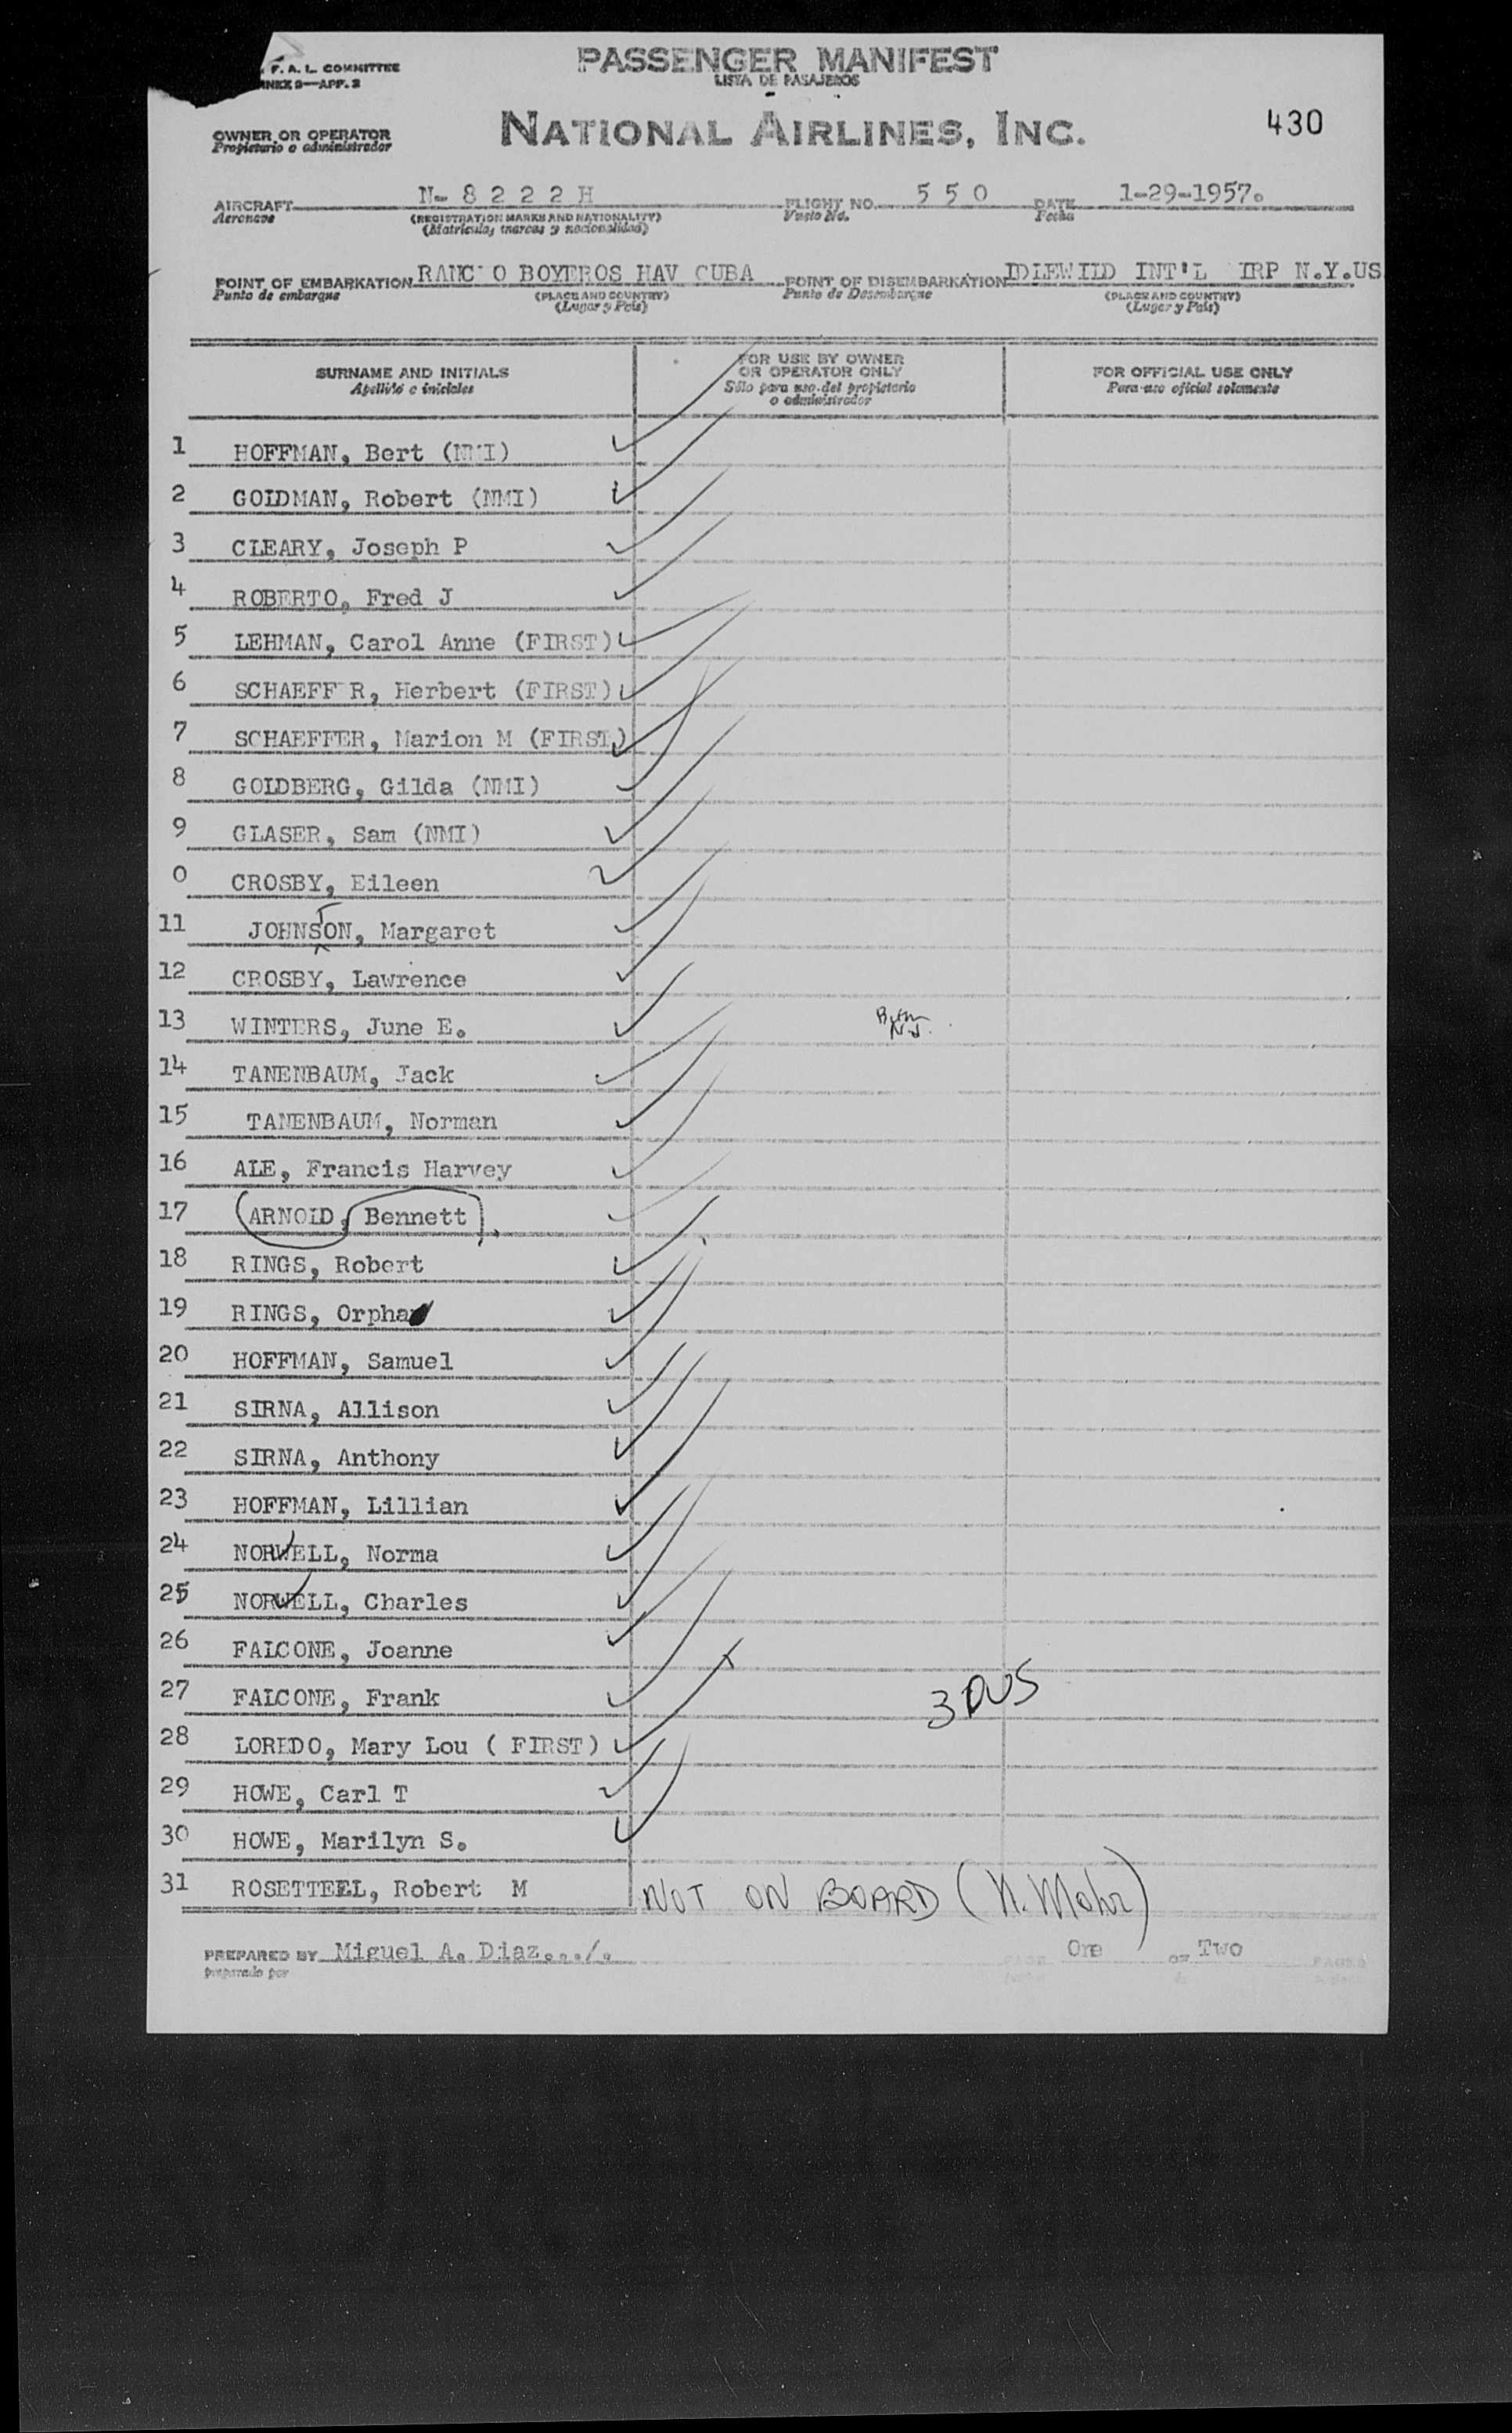 F. A. L. COMMITTEE
ANNEX 9—APP. 2
PASSENGER MANIFEST
LISTA DE PASAJEROS
OWNER OR OPERATOR
Propietario o administrador
NATIONAL AIRLINES, INC.
430
AIRCRAFT N- 8 2 2 2 H FLIGHT NO. 5 5 0 DATE 1-29-1957.
Aeronave (REGISTRATION MARKS AND NATIONALITY) Vuelo No. Fecha
(Matricula, marcas y nacionalidad)
POINT OF EMBARKATION RANC O BOYEROS HAV CUBA POINT OF DISEMBARKATION IDLEWILD INT'L IRP N.Y.US
Punto de embarque (PLACE AND COUNTRY) Punto de Desembarque (PLACE AND COUNTRY)
(Lugar y Pais) (Lugar y Pais)
SURNAME AND INITIALS
Apellido e iniciales
FOR USE BY OWNER
OR OPERATOR ONLY
Sólo para uso del propietario
o administrador
FOR OFFICIAL USE ONLY
Para uso oficial solamente
1 HOFFMAN, Bert (NMI)
2 GOLDMAN, Robert (NMI)
3 CLEARY, Joseph P
4 ROBERTO, Fred J
5 LEHMAN, Carol Anne (FIRST)
6 SCHAEFF R, Herbert (FIRST)
7 SCHAEFFER, Marion M (FIRST)
8 GOLDBERG, Gilda (NMI)
9 GLASER, Sam (NMI)
0 CROSBY, Eileen
11 JOHNSTON, Margaret
12 CROSBY, Lawrence
13 WINTERS, June E. N.J.
14 TANENBAUM, Jack
15 TANENBAUM, Norman
16 ALE, Francis Harvey
17 ARNOLD, Bennett
18 RINGS, Robert
19 RINGS, Orpha
20 HOFFMAN, Samuel
21 SIRNA, Allison
22 SIRNA, Anthony
23 HOFFMAN, Lillian
24 NORVELL, Norma
25 NORVELL, Charles
26 FALCONE, Joanne
27 FALCONE, Frank
28 LOREDO, Mary Lou ( FIRST)
29 HOWE, Carl T
30 HOWE, Marilyn S.
31 ROSETTEEL, Robert M NOT ON BOARD (N. Mohr)
PREPARED BY Miguel A. Diaz.../. PAGE One OF Two PAGES
preparado por